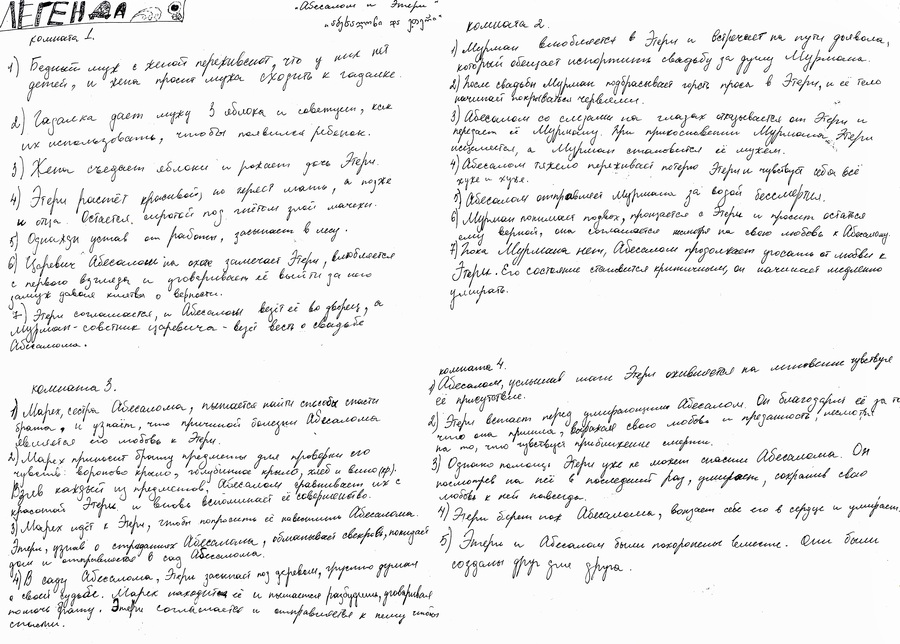 ЛЕГЕНДА
"Абесалом и Этери"
"აბესალომ და ეთერი"
комната 1.
1) Бедный муж с женой переживают, что у них нет
детей, и жена просит мужа сходить к гадалке.
2) Гадалка дает мужу 3 яблока и советует, как
их использовать, чтобы появился ребенок.
3) Жена съедает яблоки и рожает дочь Этери.
4) Этери растёт красивой, но теряет мать, а позже
и отца. Остается сиротой под гнётом злой мачехи.
5) Однажды устав от работы, засыпает в лесу.
6) Царевич Абесалом на охоте замечает Этери, влюбляется
с первого взгляда и уговаривает её выйти за него
замуж давая клятвы о верности.
7) Этери соглашается, и Абесалом везёт её во дворец, а
Мурман - советник царевича - везёт весть о свадьбе
Абесалома.
комната 2.
1) Мурман влюбляется в Этери и встречает на пути дьявола,
который обещает испортить свадьбу за душу Мурмана.
2) После свадьбы Мурман подбрасывает горсть проса в Этери, и её тело
начинает покрываться червями.
3) Абесалом со слезами на глазах отказывается от Этери и
передает её Мурману. При прикосновении Мурмана Этери
исцеляется, а Мурман становится её мужем.
4) Абесалом тяжело переживает потерю Этери и чувствует себя всё
хуже и хуже.
5) Абесалом отправляет Мурмана за водой бессмертия.
6) Мурман понимает подвох, прощается с Этери и просит остаться
ему верной, она соглашается несмотря на свою любовь к Абесалому.
7) Пока Мурмана нет, Абесалом продолжает угасать от любви к
Этери. Его состояние становится критичным, он начинает медленно
умирать.
комната 3.
1) Марех, сестра Абесалома, пытается найти способы спасти
брата, и узнаёт, что причиной болезни Абесалома
является его любовь к Этери.
2) Марех приносит брату предметы для проверки его
чувств: вороново крыло, голубиное крыло, хлеб и вино(кр).
Взяв каждый из предметов, Абесалом сравнивает их с
красотой Этери и вновь вспоминает её совершенство.
3) Марех идёт к Этери, чтобы попросить её навестить Абесалома.
Этери, узнав о страданиях Абесалома, обманывает свекровь, покидает
дом и отправляется в сад Абесалома.
4) В саду Абесалома, Этери засыпает под деревом, грустно думая
о своей судьбе. Марех находит её и пытается разбудить, уговаривая
помочь брату. Этери соглашается и отправляется к нему чтобы
спасти.
комната 4.
1) Абесалом, услышав шаги Этери оживляется на мгновение чувствуя
её присутствие.
2) Этери встает перед умирающим Абесалом. Он благодарил её за то
что она пришла, выражая свою любовь и преданность, несмотря
на то, что чувствует приближение смерти.
3) Однако помощь Этери уже не может спасти Абесалома. Он
посмотрев на неё в последний раз, умирает, сохранив свою
любовь к ней навсегда.
4) Этери берет нож Абесалома, вонзает себе его в сердце и умирает.
5) Этери и Абесалом были похоронены вместе. Они были
созданы друг для друга.